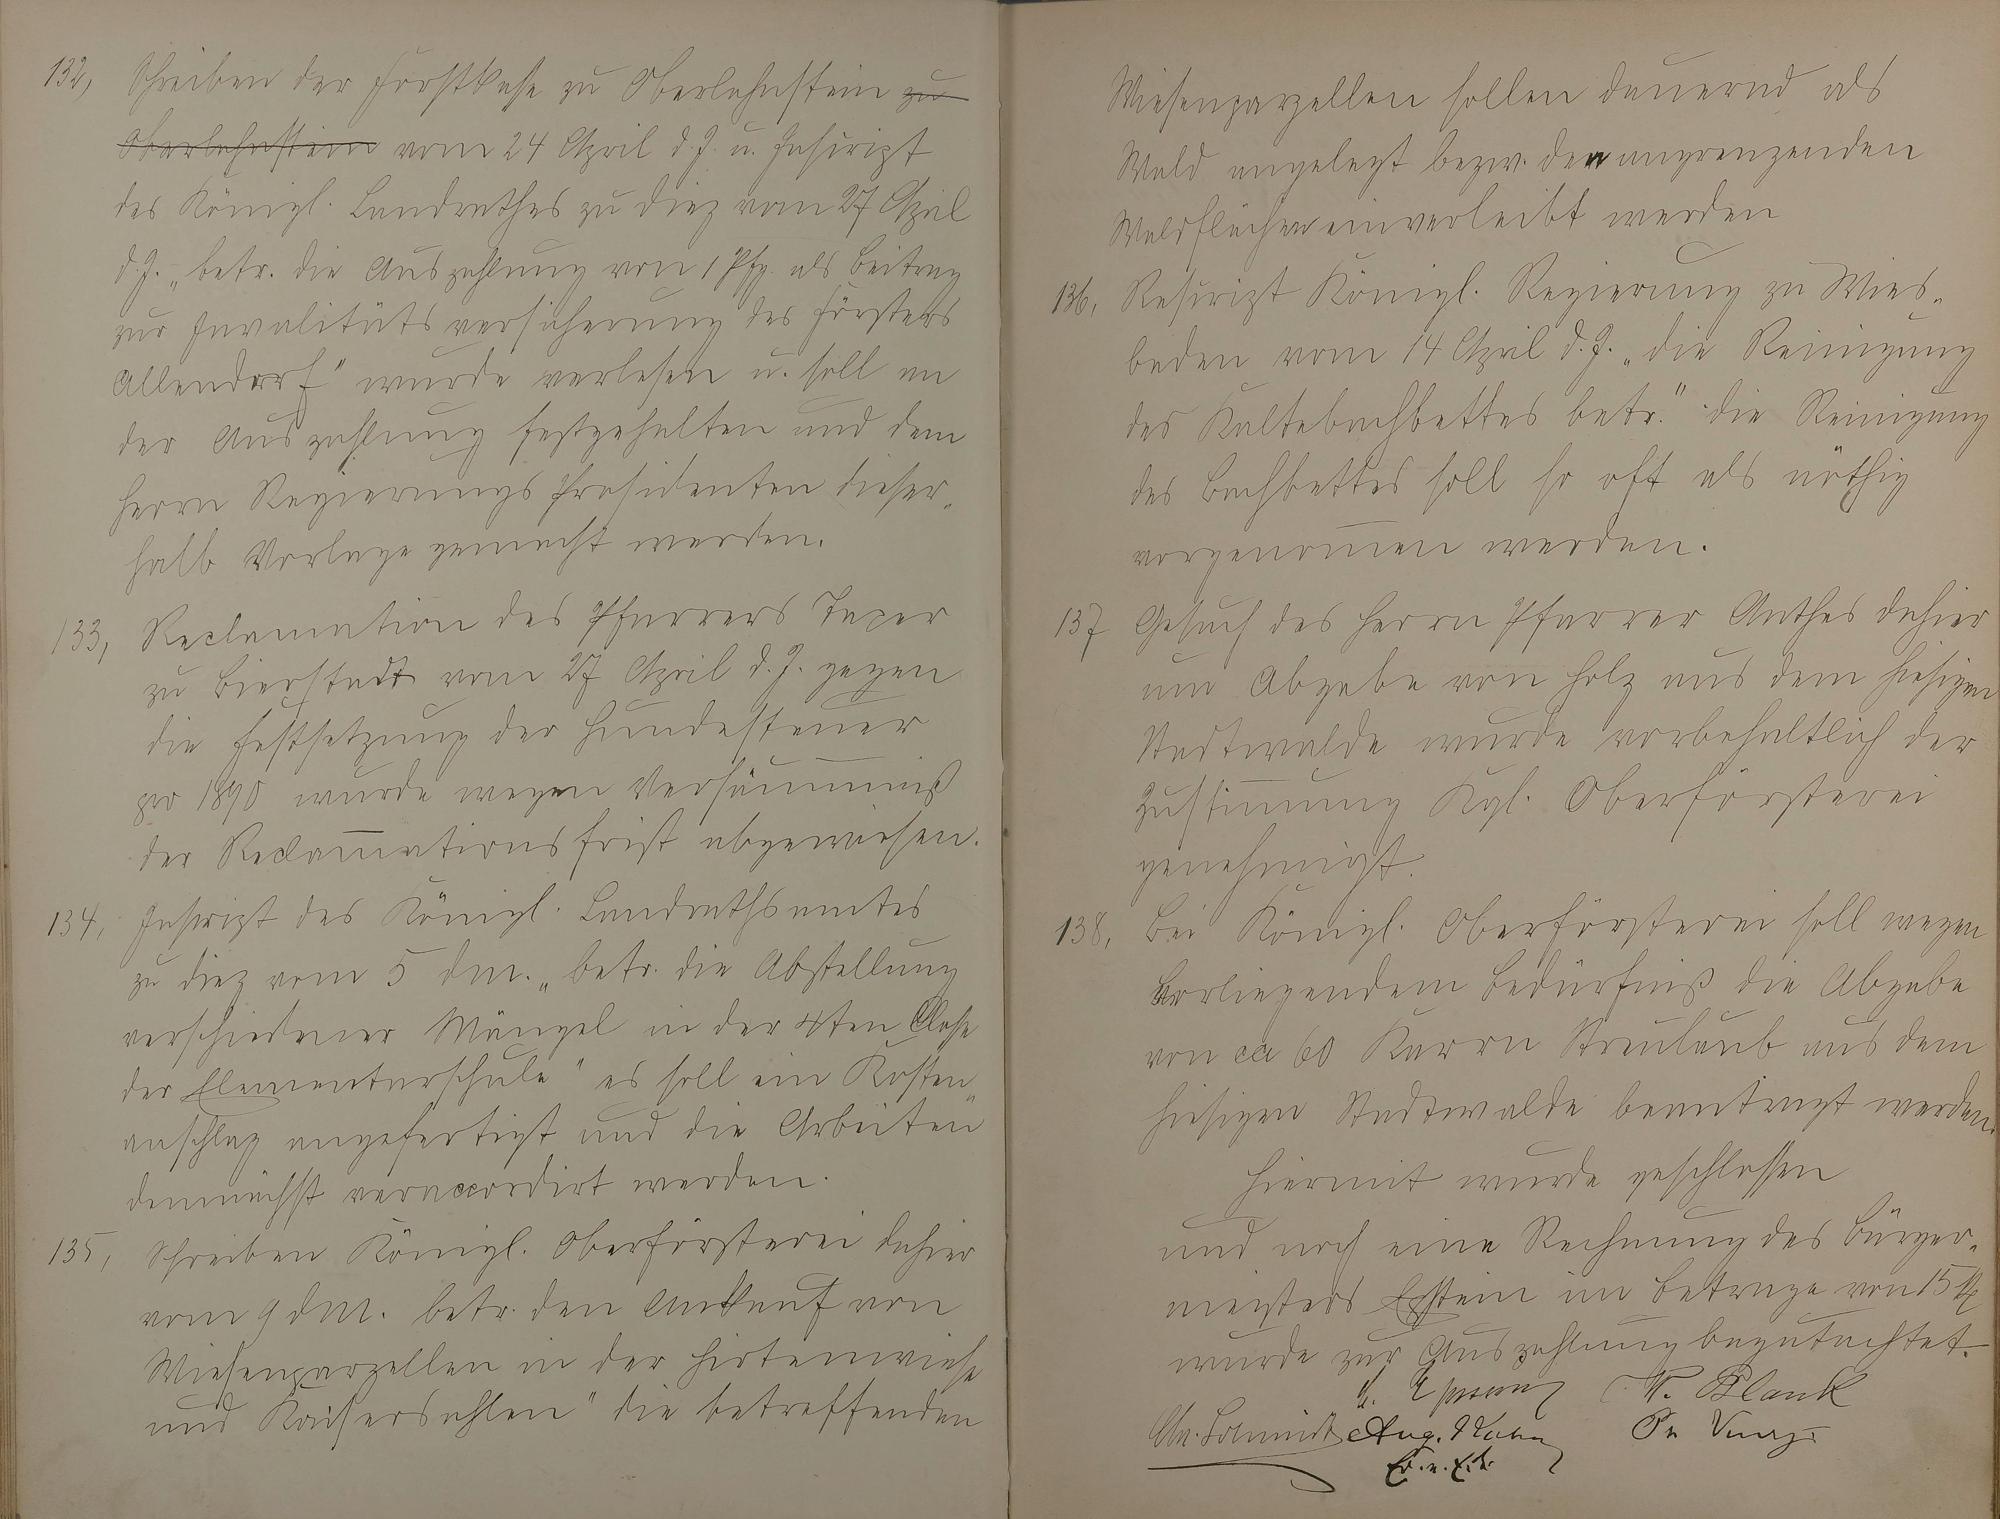 132, Schreiben der Forstkasse zu Oberlahnstein zu
Oberlahnstein vom 24 April d. J. u. Inscript
des Königl. Landrathes zu Diez vom 27 April
d. J. „betr. die Auszahlung von 1 Pfg. als Beitrag
zur Invalitäts versicherung des Försters
Allendorf" wurde verlesen u. soll an
der Auszahlung festgehalten und dem
Herrn Regierungs Präsidenten dieser„
halb Vorlage gemacht werden.
133, Reclamation des Pfarrers
zu Bierstadt vom 27 April d. J. gegen
die Festsetzung der Hundesteuer
pro 1890 wurde wegen Versäumniß
der Reclamationsfrist abgewiesen.
134, Inscript des Königl. Landrathsamtes
zu Diez vom 5 dM. „betr. die Abstellung
verschiedener Mängel in der 4ten Classe
der Elementarschule" es soll ein Kosten„
anschlag angefertigt und die Arbeiten
demnächst veraccordirt werden.
135, Schreiben Königl. Oberförsterei dahier
vom 9 dM. betr. den Ankauf von
Wiesenparzellen in der Hirtenwiese
und Kaisersahlen" die betreffenden
Wiesenparzellen sollen dauernd als
Wald angelegt bezw. den angrenzenden
Waldflächen einverleibt werden
136, Rescript Königl. Regierung zu Wies„
baden vom 14 April d. J. „die Reinigung
des Kaltebachbettes betr." die Reinigung
des Bachbettes soll so oft als nöthig
vorgenom̅en werden.
137 Gesuch des Herrn Pfarrer Anthes dahier
um Abgabe von Holz aus dem hiesigen
Stadtwalde wurde vorbehaltlich der
Zustim̅ung Kgl. Oberförsterei
genehmigt.
138, Bei Königl. Oberförsterei soll wegen
vorliegendem Bedürfniß die Abgabe
von ca 60 Karrn Streulaub aus dem
hiesigen Stadtwalde beantragt werden.
Hiermit wurde geschlossen
und noch eine Rechnung des Bürger„
meisters Epstein im Betrage von 15 M
wurde zur Auszahlung begutachtet.
W. Blank
Chr. Schmidt Aug.